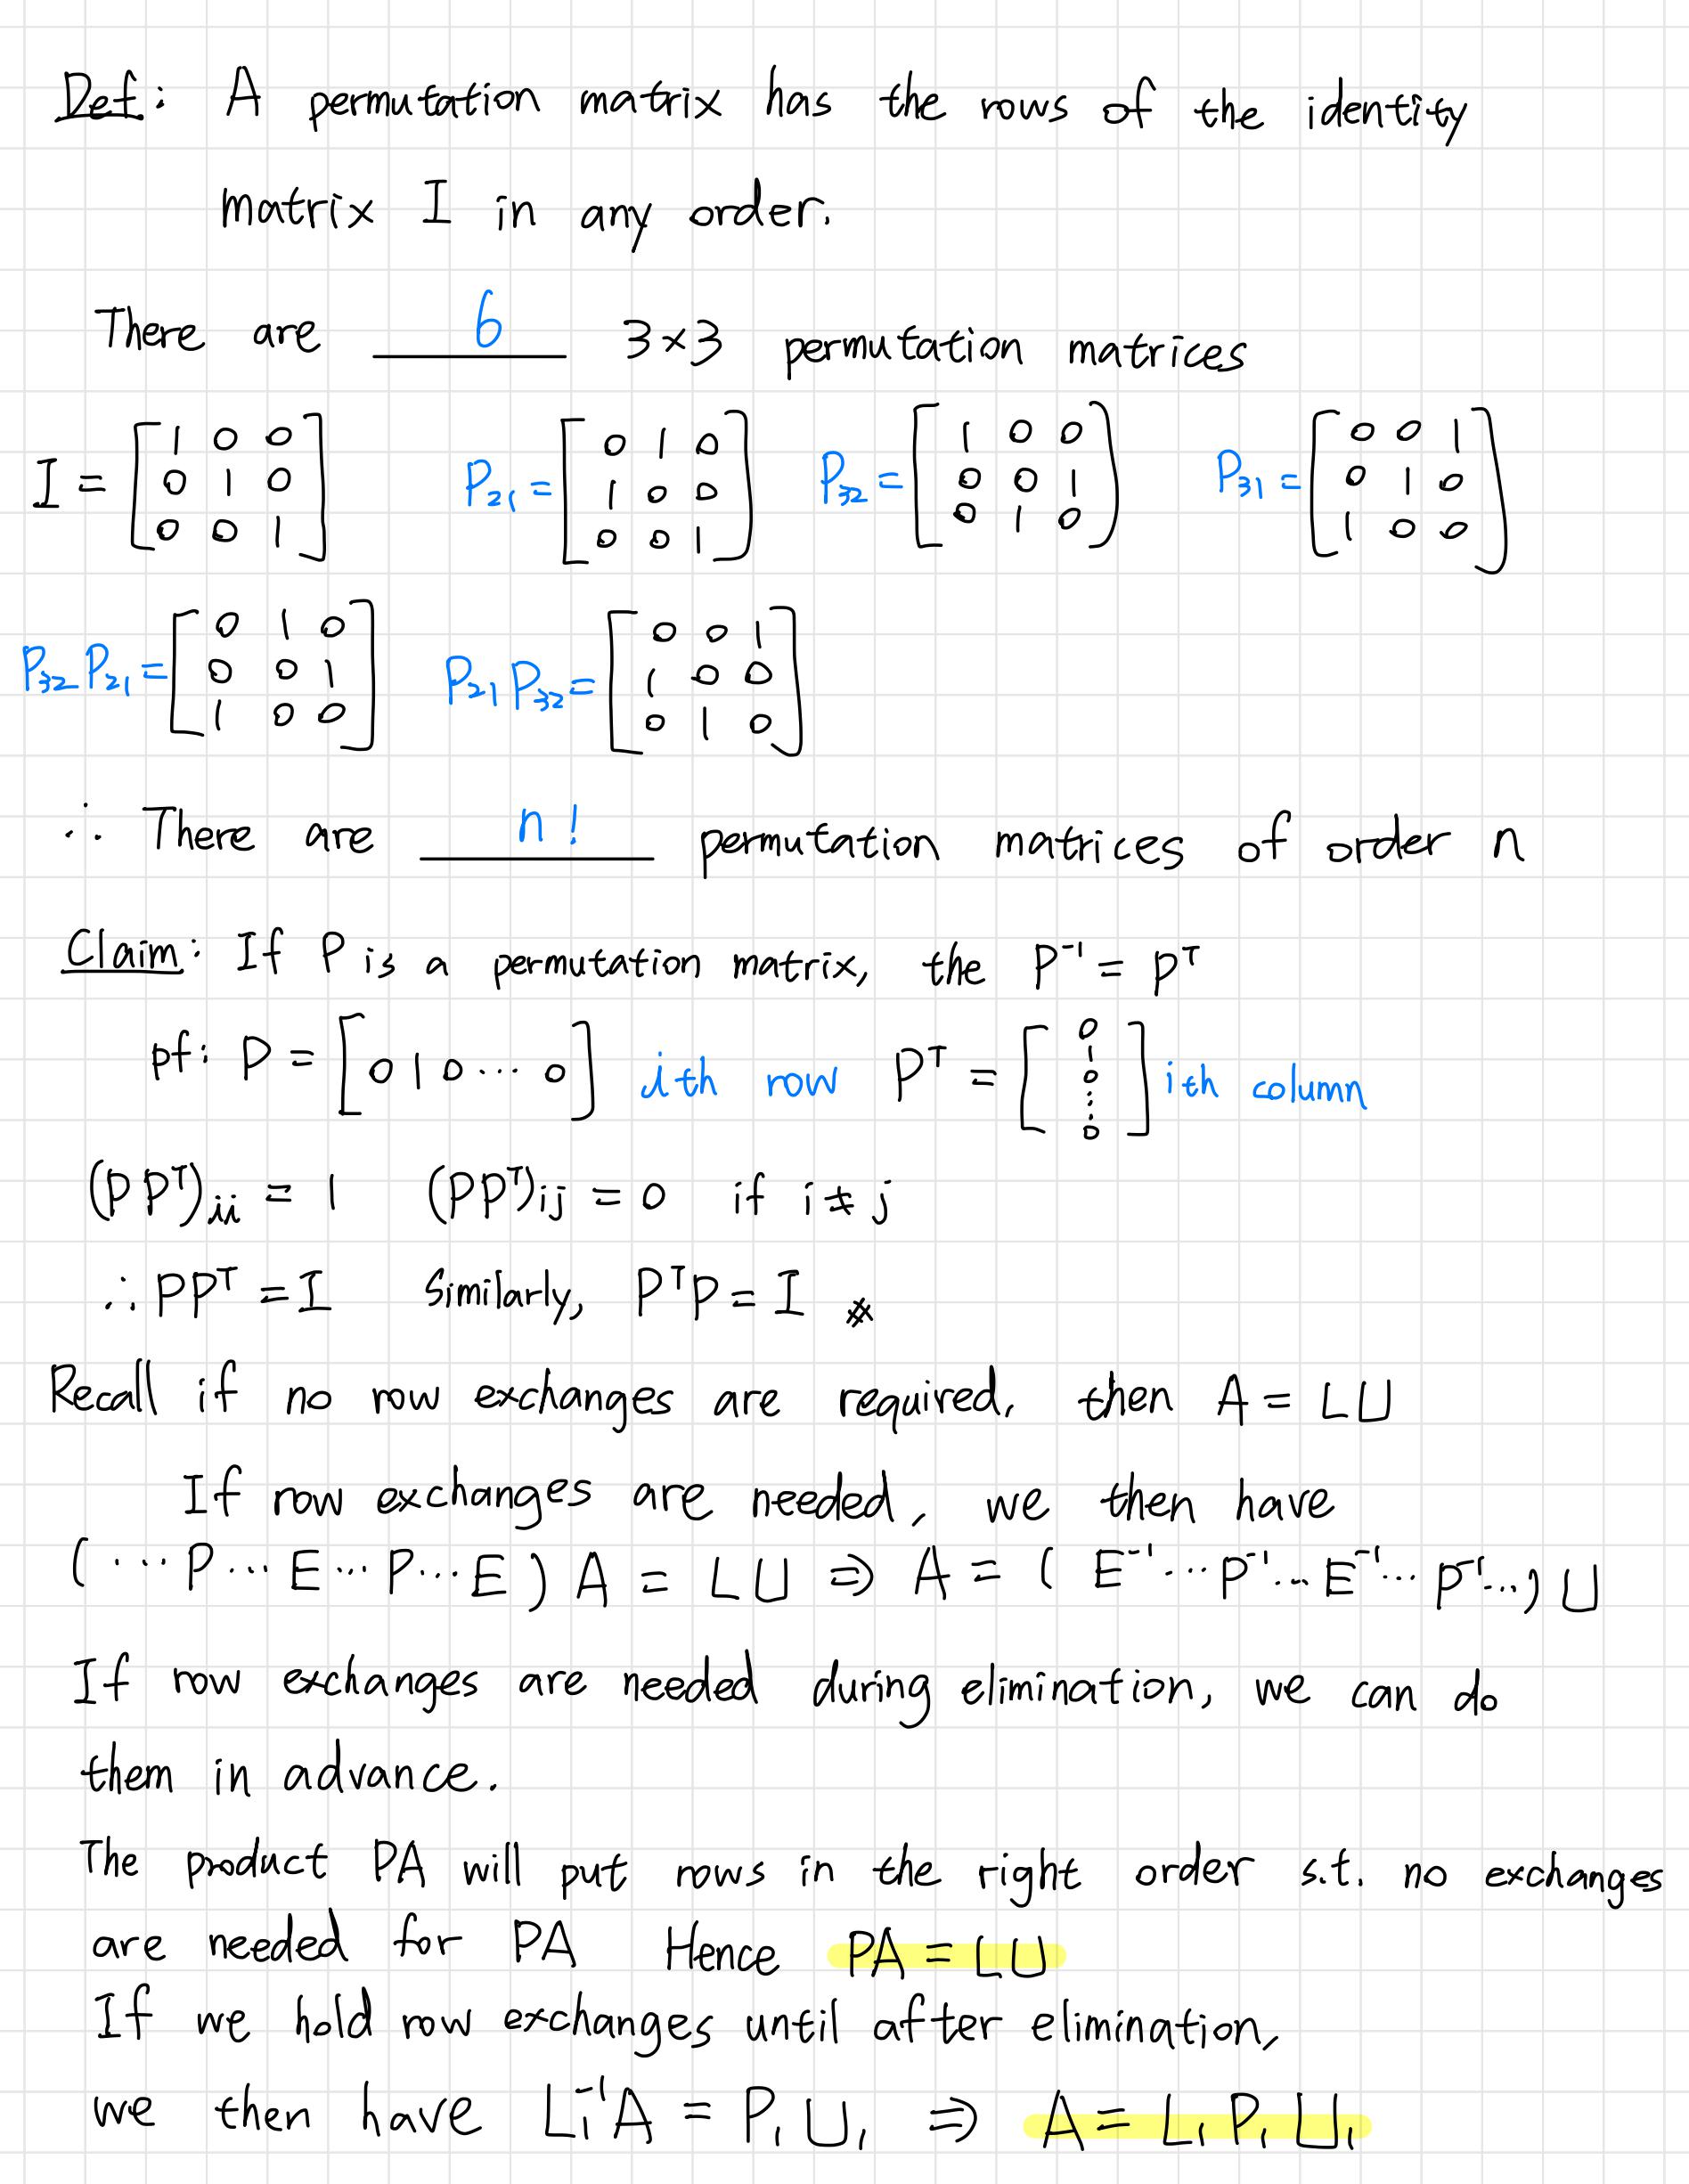 Def: A permutation matrix has the rows of the identity
matrix I in any order.
There are 6 3×3 permutation matrices
I = [1 0 0; 0 1 0; 0 0 1] P₂₁ = [0 1 0; 1 0 0; 0 0 1] P₃₂ = [1 0 0; 0 0 1; 0 1 0] P₃₁ = [0 0 1; 0 1 0; 1 0 0]
P₃₂ P₂₁ = [0 1 0; 0 0 1; 1 0 0] P₂₁ P₃₂ = [0 0 1; 1 0 0; 0 1 0]
∴ There are n! permutation matrices of order n
Claim: If P is a permutation matrix, the P⁻¹ = Pᵀ
pf: P = [0 1 0 ⋯ 0] ith row Pᵀ = [0; 1; 0; ⋮; 0] ith column
(PPᵀ)ᵢᵢ = 1 (PPᵀ)ᵢⱼ = 0 if i ≠ j
∴ PPᵀ = I Similarly, PᵀP = I ※
Recall if no row exchanges are required, then A = LU
If row exchanges are needed, we then have
(⋯P⋯E⋯P⋯E) A = LU ⇒ A = (E⁻¹⋯P⁻¹⋯E⁻¹⋯P⁻¹⋯) U
If row exchanges are needed during elimination, we can do
them in advance.
The product PA will put rows in the right order s.t. no exchanges
are needed for PA Hence PA = LU
If we hold row exchanges until after elimination,
we then have L₁⁻¹A = P₁U₁ ⇒ A = L₁P₁U₁